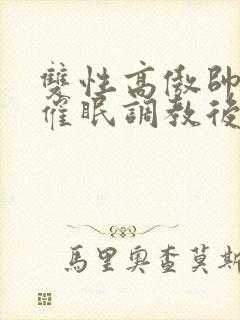 雙性高傲帥
催眠調教後
馬里奧查莫斯